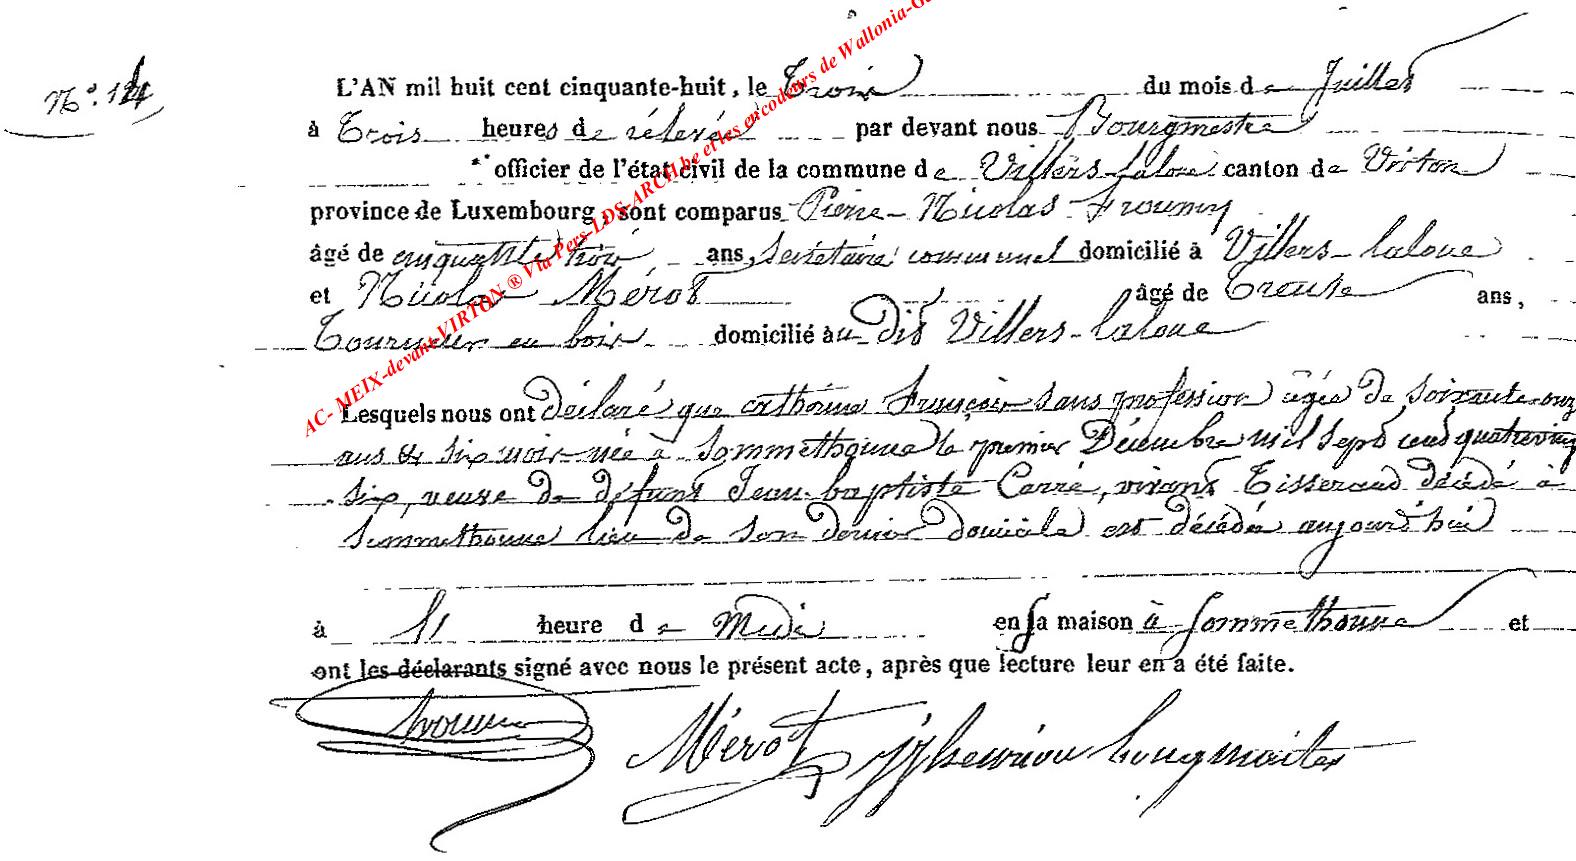 N.º 14,
L'AN mil huit cent cinquante-huit, le Trois du mois de Juillet
à Trois heures de rélevée par devant nous Bourgmestre
officier de l'état civil de la commune de Villers-laloue canton de Virton
province de Luxembourg, sont comparus Pierre-Nicolas Froumy
âgé de cinquante trois ans, secrétaire communal domicilié à Villers-laloue
et Nicolas Mérot âgé de Trente ans,
Tourneur en bois domicilié au dit Villers-laloue
Lesquels nous ont déclaré que catherine François sans profession agée de soixante-onz
ans et six mois née à Sommethonne le premier Décembre mil sept cent quatreving
six, veuve de défunt Jean-baptiste Carré, vivant Tisserand décédé à
Sommethonne lieu de son dernier domicile est décédée aujourd'hui
à 11 heure de Midi en sa maison à Sommethonne et
ont les déclarants signé avec nous le présent acte, après que lecture leur en a été faite.
Mérot bourgmaitre
AC- MEIX-devant-VIRTON ® Via Pers-LDS-ARCH.be et les encodeurs de Wallonia-G